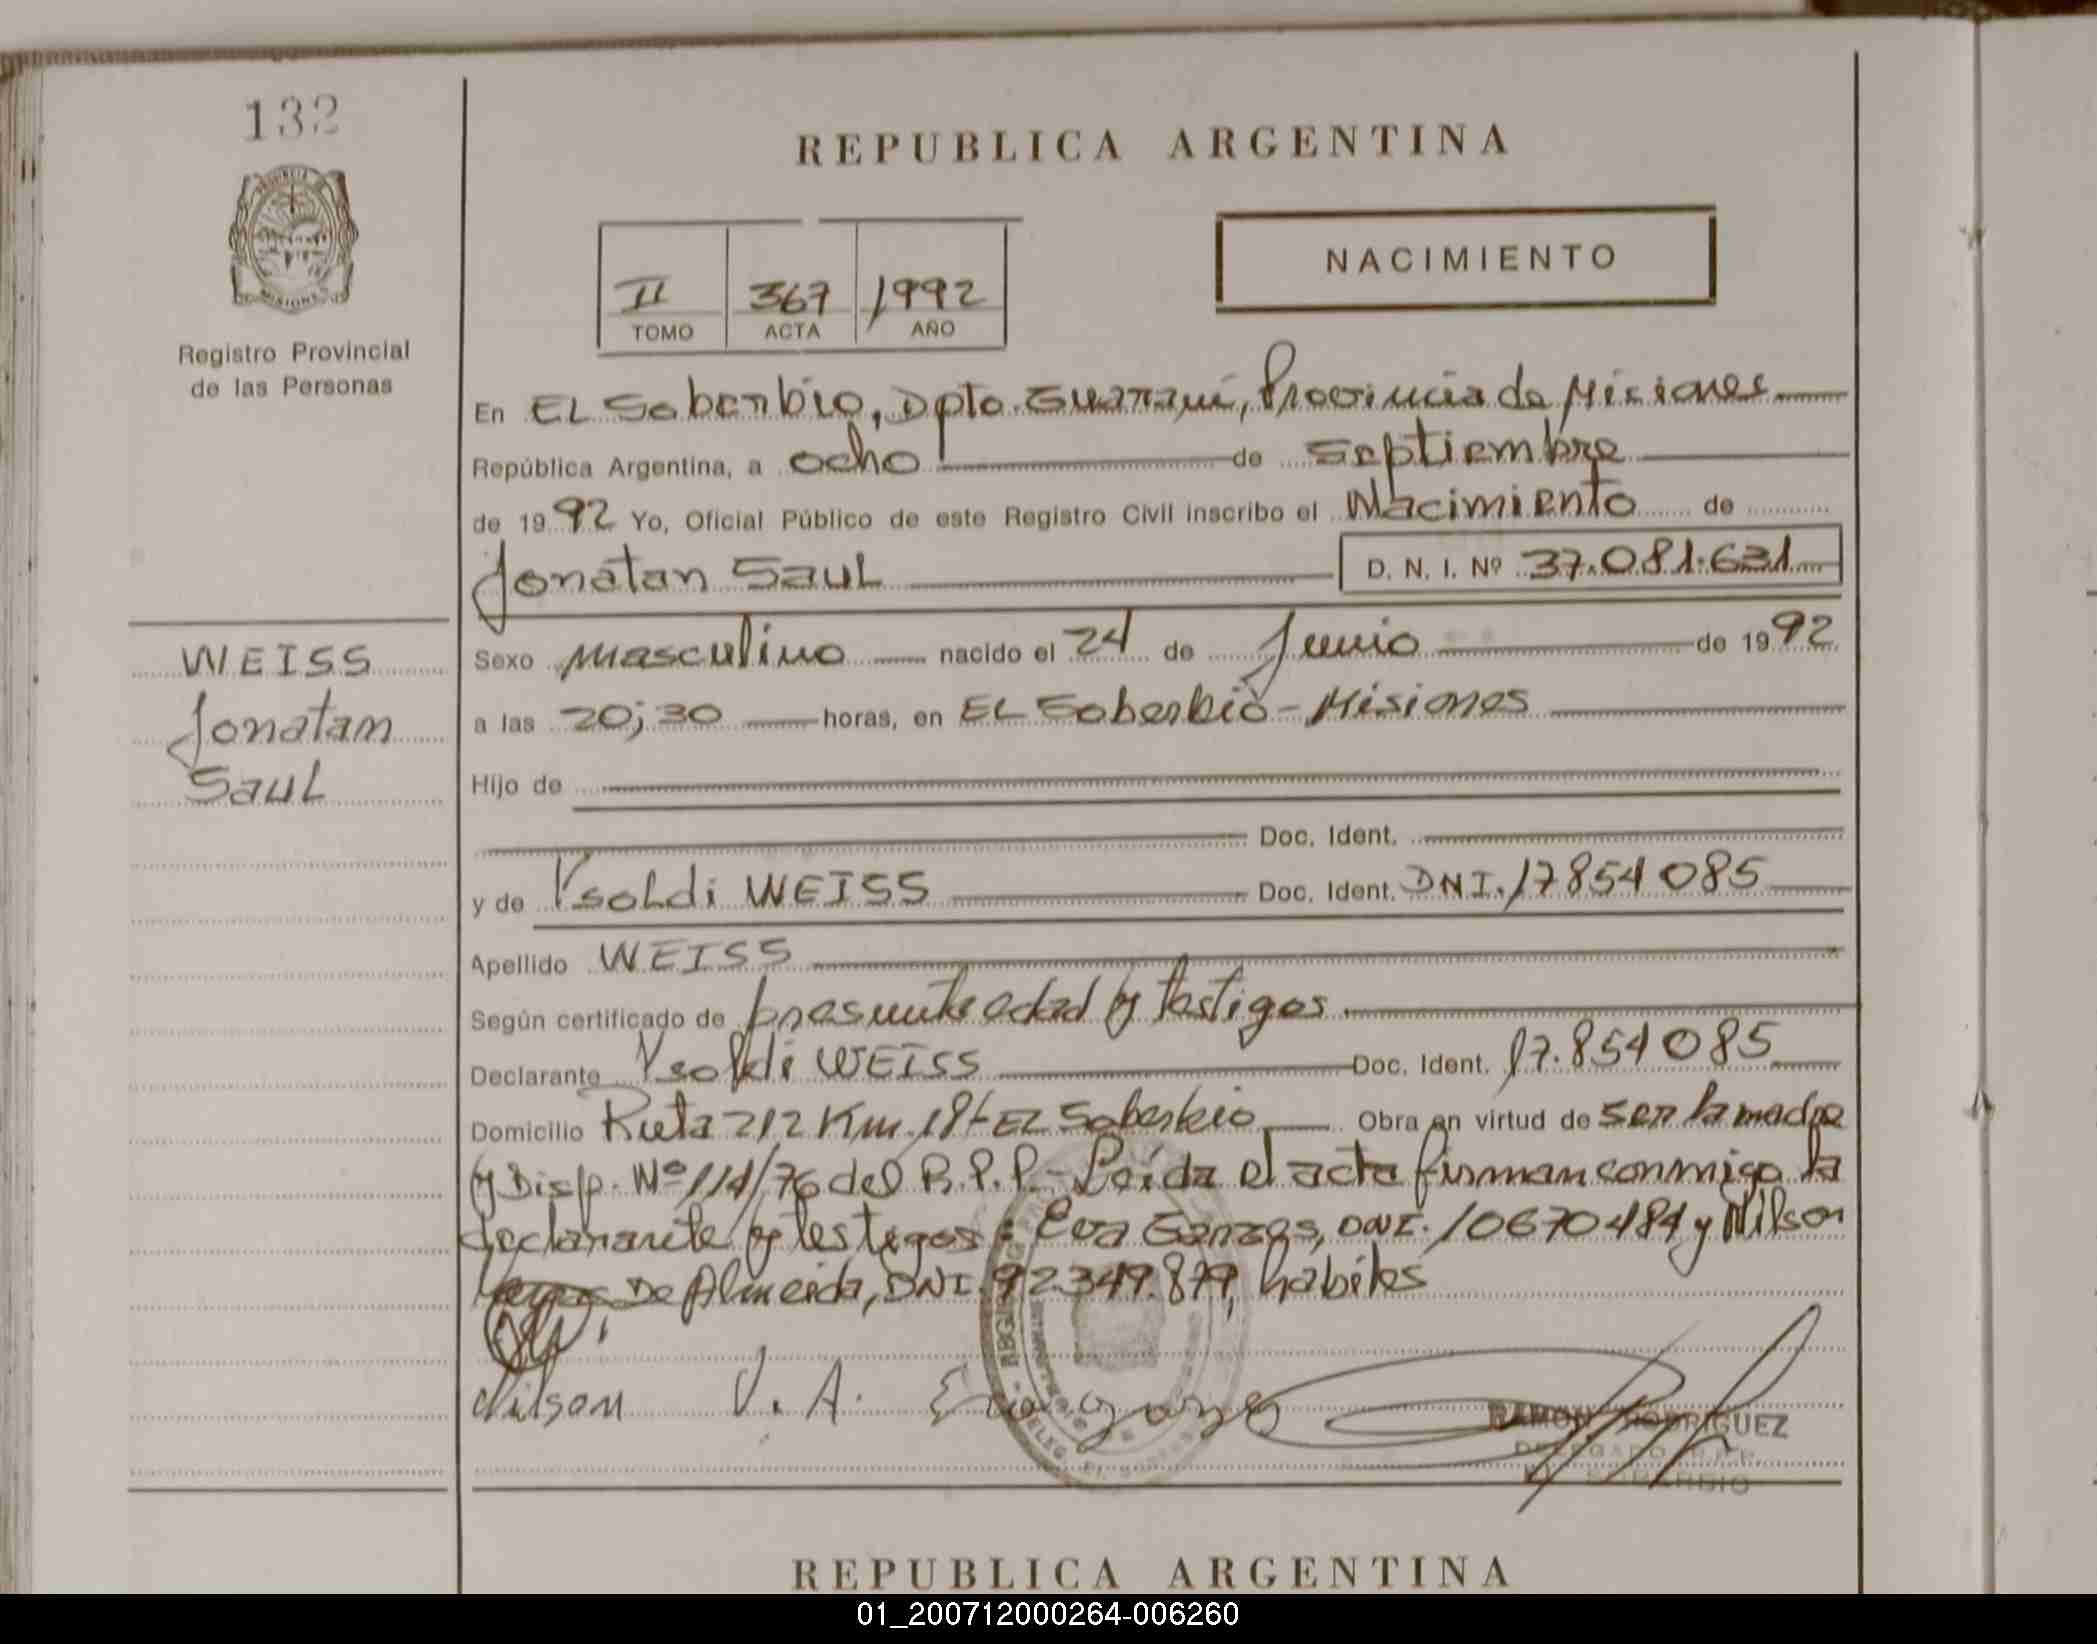 132
REPUBLICA ARGENTINA
NACIMIENTO
II 367 1992
TOMO ACTA AÑO
Registro Provincial
de las Personas
En EL Soberbio, Dpto. Guaraní, Provincia de Misiones
República Argentina, a ocho de Septiembre
de 1992 Yo, Oficial Público de este Registro Civil inscribo el Nacimiento de
Jonatan Saul D. N. I. Nº 37.081.631
WEISS
Jonatam
Saul
Sexo masculino nacido el 24 de Junio de 1992
a las 20;30 horas, en EL Soberbio - Misiones
Hijo de
Doc. Ident.
y de Ysoldi WEISS Doc. Ident. DNI. 17854085
Apellido WEISS
Según certificado de presunta edad y testigos.
Declarante Ysoldi WEISS Doc. Ident. 17.854085
Domicilio Ruta 212 Km. 18 - EL Soberbio Obra en virtud de ser la madre
y Disp. Nº 114/76 del R.P.P. - Leída el acta firman conmigo la
declarante y testigos: Eva Garzas, DNI. 10670484 y Nilson
De Almeida, DNI. 92349.879, habiles
Nilson V. A. Eva
RAMON RODRIGUEZ
DELEGADO R.P.P.
EL SOBERBIO
REPUBLICA ARGENTINA
01_200712000264-006260